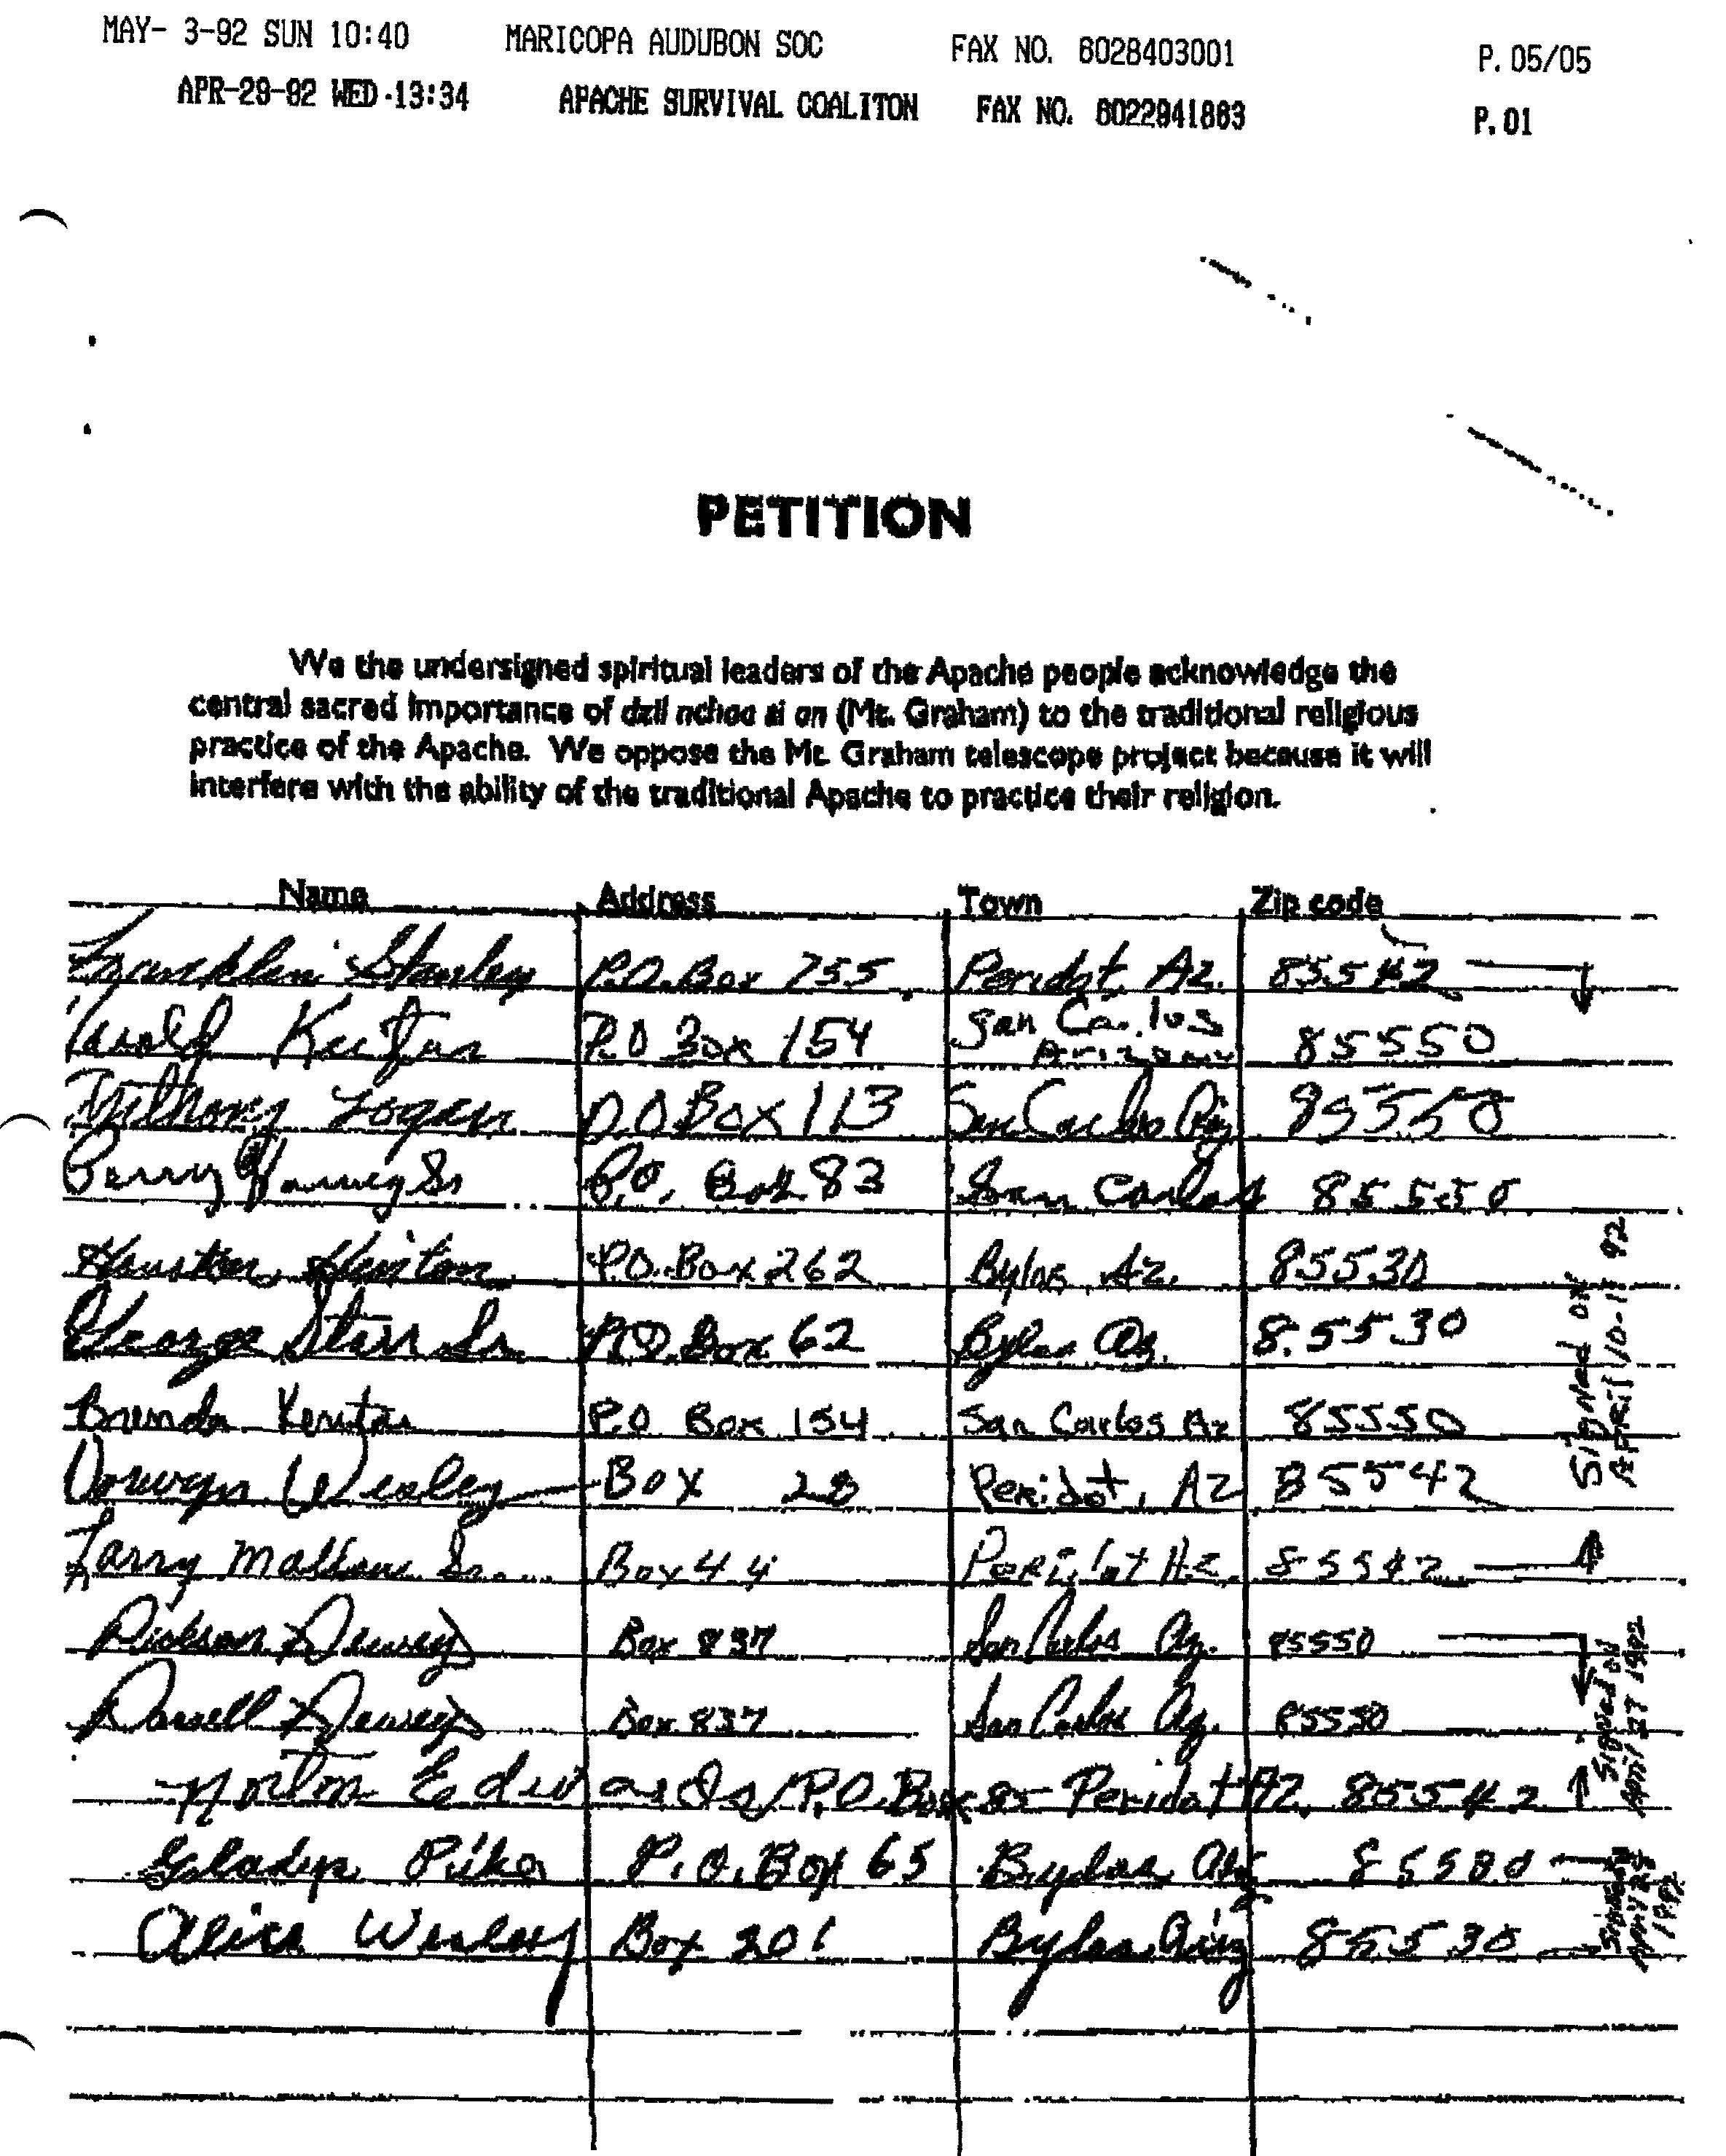 MAY- 3-92 SUN 10:40 MARICOPA AUDUBON SOC FAX NO. 6028403001 P. 05/05
APR-29-92 WED 13:34 APACHE SURVIVAL COALITON FAX NO. 6022941863 P. 01
PETITION
We the undersigned spiritual leaders of the Apache people acknowledge the
central sacred importance of dzil nchaa si an (Mt. Graham) to the traditional religious
practice of the Apache. We oppose the Mt. Graham telescope project because it will
interfere with the ability of the traditional Apache to practice their religion.
Name Address Town Zip code
Franklin Stanley P.O. Box 755 Peridot Az. 85542
Kenton P.O Box 154 San Carlos Arizona 85550
Anthony Logan P.O Box 113 San Carlos Ariz 85550
Perry Harvey Sr P.O. Box 83 San Carlos 85550
Houston Hinton P.O. Box 262 Bylas Az. 85530
George Starr Sr. P.O. Box 62 Bylas Az. 85530
Brenda P.O Box 154 San Carlos Az 85550
Wesley Box 28 Peridot, AZ 85542
Larry Mathew Sr. Box 44 Peridot Az. 85542
Dickson Dewey Box 837 San Carlos Az. 85550
Darrell Dewey Box 837 San Carlos Az. 85550
Norton Edwards P.O. Box 85 Peridot AZ. 85542
Gladys Pike P.O. Box 65 Bylas, Ariz 85530
Alice Wesley Box 201 Bylas, Ariz 85530
Signed on
APRIL 10-17 92
Signed on
April 27 1992
Signed on
April 28
1992